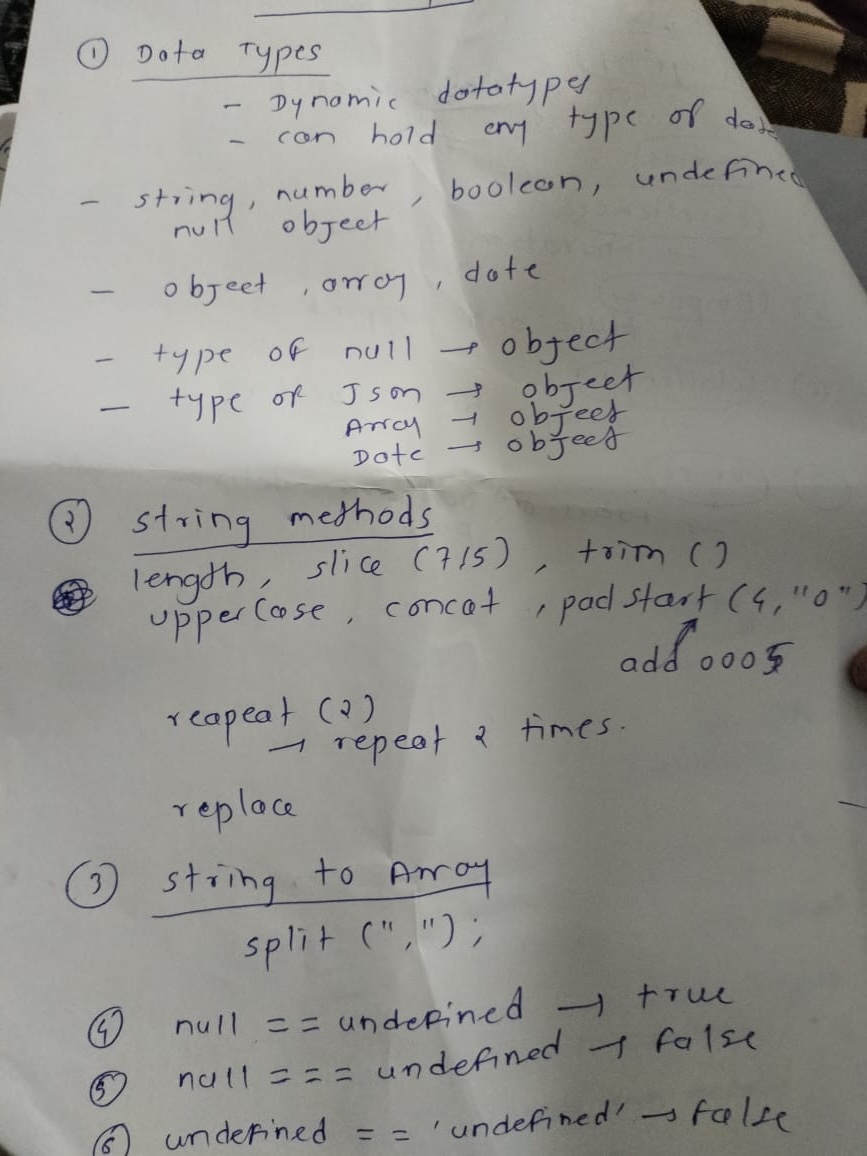 ① Data Types
- Dynamic datatypes
- can hold any type of
- string, number, boolean, undefined
null object
- object, array, date
- type of null → object
- type of Json → object
Array → object
Date → object
② string methods
length, slice (7,15), trim ()
upperCase, concat, padStart (4, "0")
add 0005
reapeat (2)
→ repeat 2 times.
replace
③ string to Array
split (",");
④ null == undefined → true
⑤ null === undefined → false
⑥ undefined == 'undefined' → false